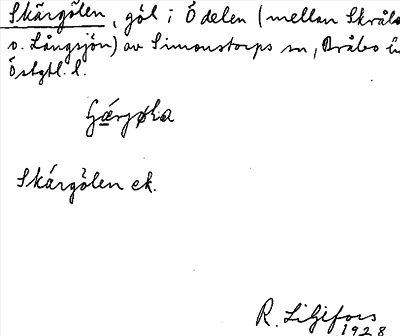 Skärgölen, göl i Ö delen (mellan Skråle
o. Långsjön) av Simonstorps sn, Bråbo
Östgtl. l.
Skärgölen ek.
R. Liljefors
1928